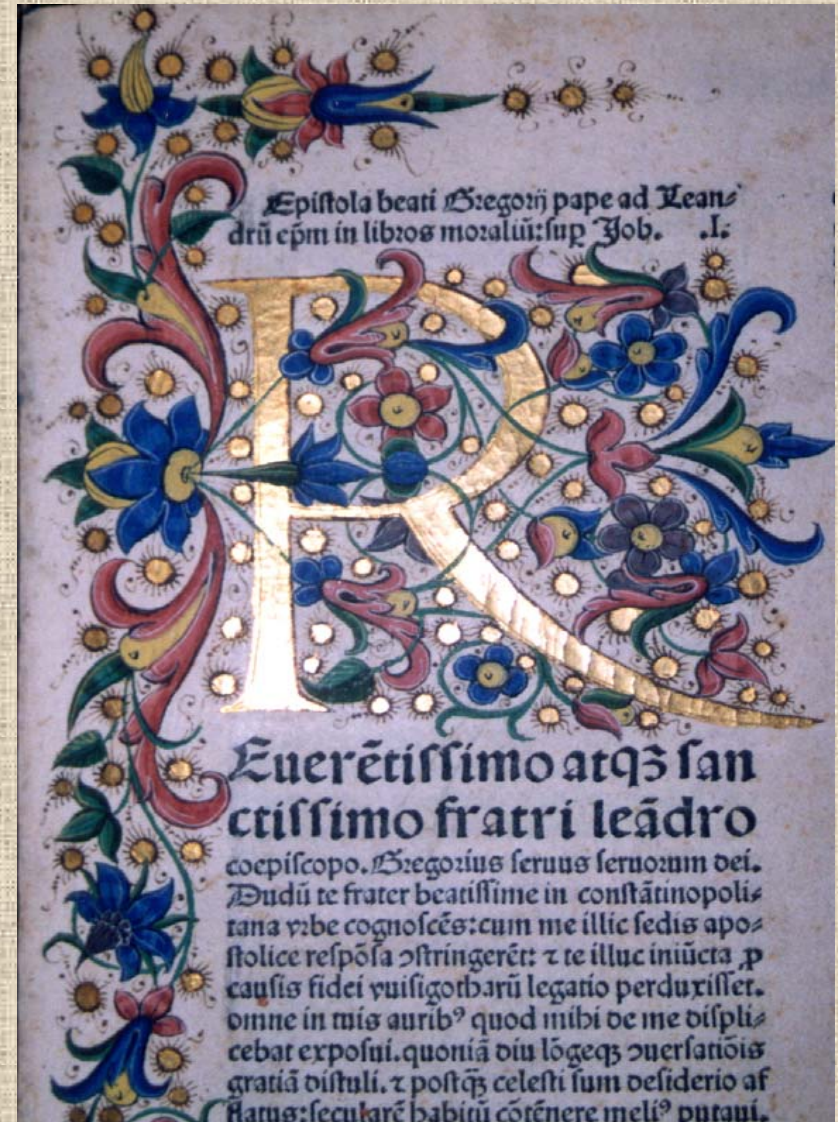 Epistola beati Gregorij pape ad Lean⸗
drũ ep̃m in libros moraliũ: suꝑ Job. .I.
R
Euerẽtissimo atqꝫ san
ctissimo fratri leãdro
coepiscopo. Gregorius seruus seruorum dei.
Dudũ te frater beatissime in constãtinopoli⸗
tana vrbe cognoscẽs: cum me illic sedis apo⸗
stolice respõsa ꝯstringerẽt: ⁊ te illuc iniũcta ꝓ
causis fidei vuisigotharũ legatio perduxisset.
omne in tuis auribꝰ quod mihi de me displi⸗
cebat exposui. quoniã diu lõgeqꝫ ꝯuersatiõis
gratiã distuli. ⁊ postqꝫ̃ celesti sum desiderio af
flatus: secularẽ habitũ cõtẽnere meliꝰ putaui.